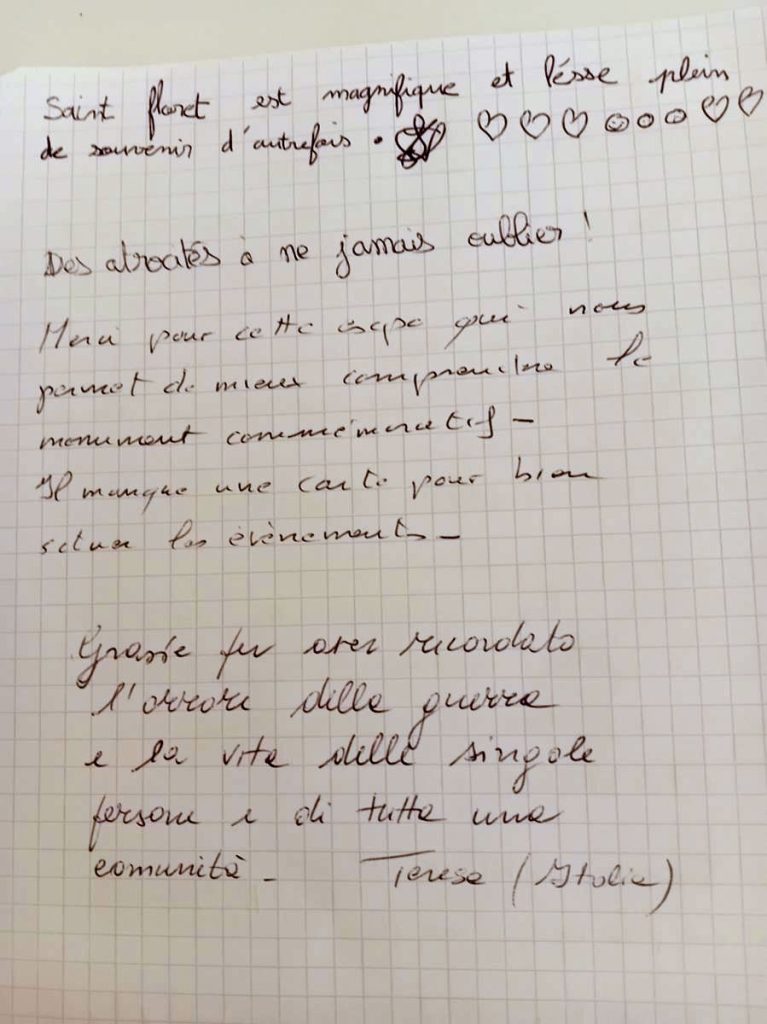 Saint floret est magnifique et lésse plein
de souvenir d'autrefois. ♡ ♡ ♡ ☺ ☺ ☺ ♡ ♡
Des atrocités à ne jamais oublier !
Merci pour cette expo qui nous
permet de mieux comprendre le
monument commémoratif -
Il manque une carte pour bien
situer les évènements -
Grazie per aver ricordato
l'orrore della guerra
e la vita delle singole
persone e di tutta una
comunità - Teresa (Italia)